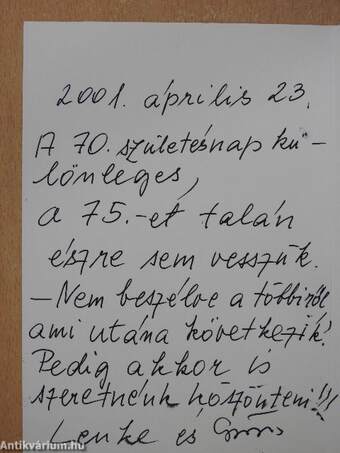 2001. április 23.
A 70. születésnap kü-
lönleges,
a 75.-et talán
észre sem vesszük.
- Nem beszélve a többiről
ami utána következik!
Pedig akkor is
szeretnénk köszönteni!!!
Lenke és
Antikvárium.hu